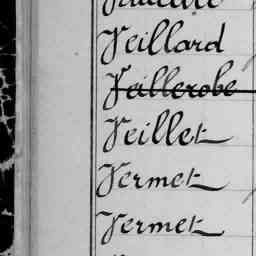 Veillard
Veillerobe
Veillet
Vermet
Vermet